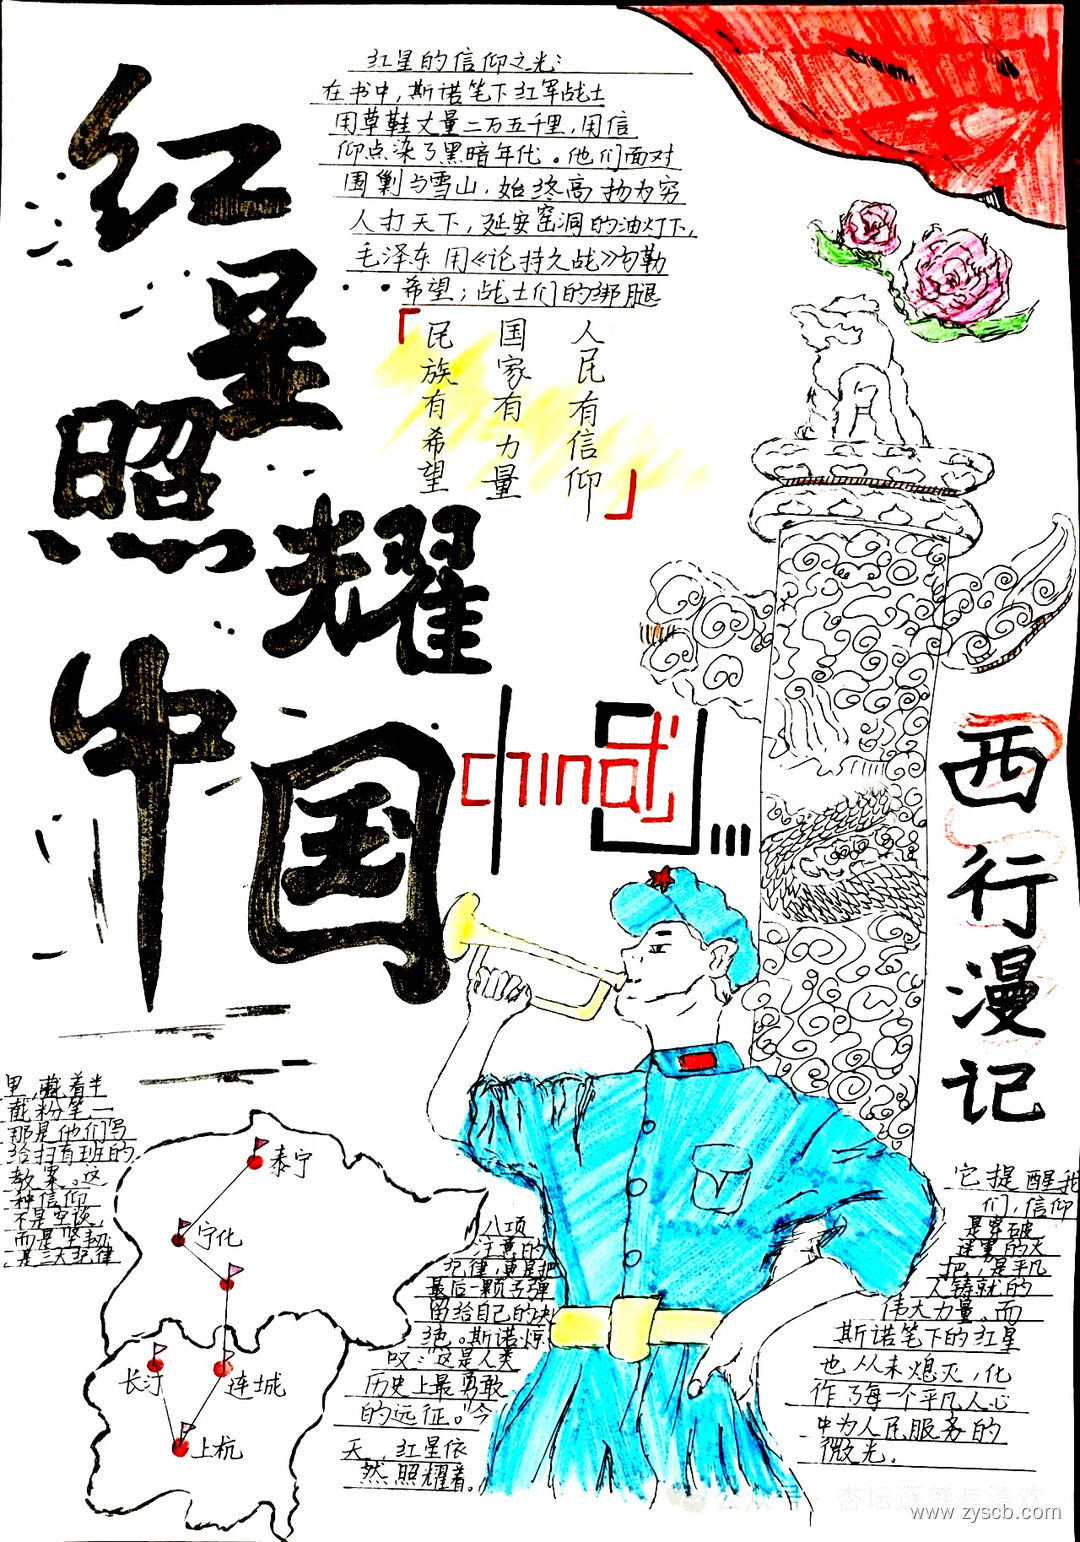 红星照耀中国
红星的信仰之光:
在书中,斯诺笔下红军战士
用草鞋丈量二万五千里,用信
仰点染了黑暗年代。他们面对
围剿与雪山,始终高扬为穷
人打天下,延安窑洞的油灯下,
毛泽东用《论持久战》勾勒
希望;战士们的绑腿
「人民有信仰
国家有力量
民族有希望」
china
中国...
西行漫记
里,藏着半
截粉笔一
那是他们写
给扫盲班的
教案。这
种信仰
不是空谈,
而是坚韧
是三大纪律
泰宁
宁化
长汀
连城
上杭
八项
注意的
纪律,更是把
最后一颗子弹
留给自己的决
绝。斯诺惊
叹:“这是人类
历史上最勇敢
的远征。”今
天,红星依
然照耀着。
它提醒我
们,信仰
是穿破
迷雾的火
把,是平凡
人铸就的
伟大力量。而
斯诺笔下的红星
也从未熄灭,化
作了每一个平凡人心
中为人民服务的
微光.
公众号·杏坛逐梦有清欢
www.zyscb.com